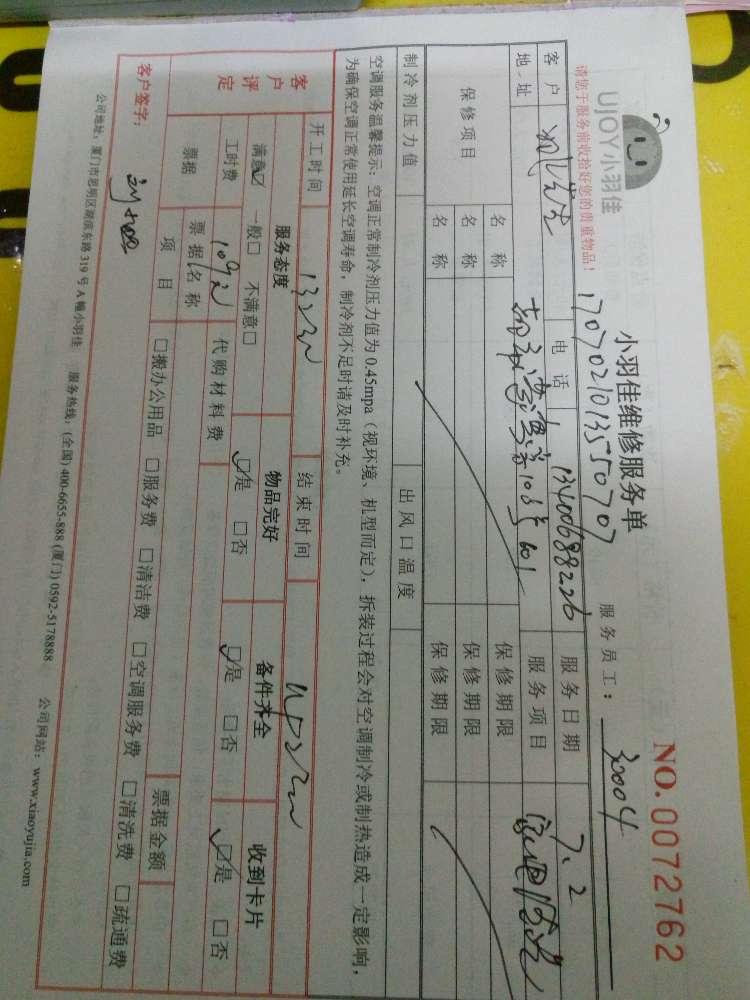 UJOY小羽佳
请您于服务前收拾好您的贵重物品!
小羽佳维修服务单
NO.0072762
17070210135550707
服务员工: 30004
客户 电话 13400688226 服务日期 7.2
地址 108号601 服务项目
保修项目 名称 保修期限
名称 保修期限
名称 保修期限
制冷剂压力值 出风口温度
空调服务温馨提示:空调正常制冷剂压力值为0.45mpa(视环境、机型而定),拆装过程会对空调制冷或制热造成一定影响,
为确保空调正常使用延长空调寿命,制冷剂不足时请及时补充。
开工时间 结束时间
客户评定 服务态度 物品完好 备件齐全 收到卡片
满意☑ 一般□ 不满意□ ☑是 □否 ☑是 □否 ☑是 □否
工时费 109元 代购材料费
票据 票据名称 票据金额
项目 □搬办公用品 □服务费 □清洁费 □空调服务费 □清洗费 □疏通费
客户签字:
公司地址:厦门市思明区湖滨东路319号A幢小羽佳 服务热线:(全国)400-6655-888 (厦门)0592-5178888 公司网站:www.xiaoyujia.com